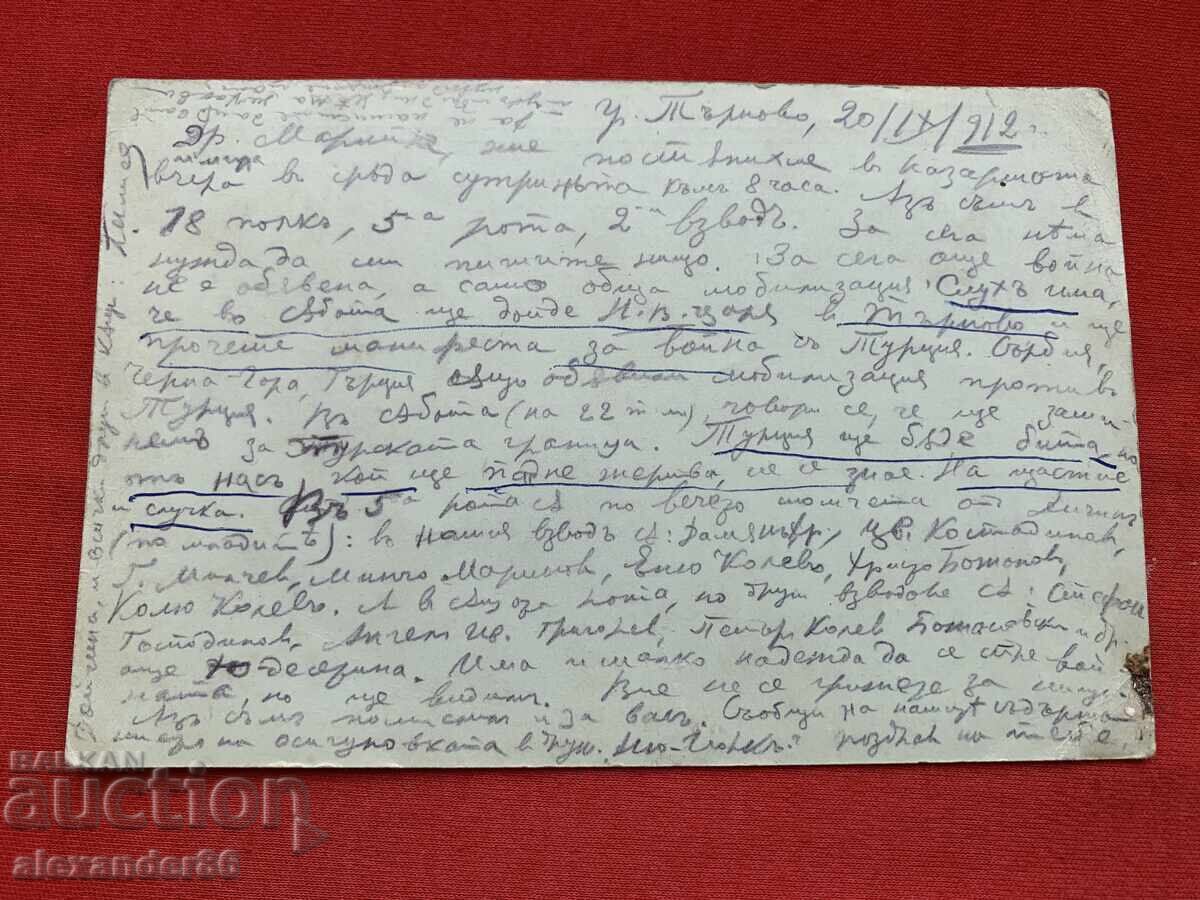 гр. Търново, 20/IX/912 г.
Др. ние постѫпихме в казармата
вчера в срѣда сутриньта къмъ 8 часа. Азъ съмъ в
18 полкъ, 5та рота, 2и взводъ. За сега нѣма
нужда да ми пишите нищо. За сега още война
не е обявена, а само обща мобилизация. Слухъ има,
че во сѫбота ще дойде Н. В. царя в Търново и ще
прочете манифеста за война съ Турция. Сърбия,
Черна-Гора, Гърция сѫщо обявили мобилизация противъ
Турция. Въ сѫбота (на 22 т. м.), говори се, че ще зами-
немъ за Турската граница. Турция ще бѫде бита
отъ насъ, кой ще падне жертва, не се знае. На щастие
и случка. Въ 5а рота сѫ повечето момчета от
(по-младитѣ): в нашия взводъ сѫ: Цв. Костадинов,
Г. Минчев, Минчо Маринов, Еню Колевъ, Христо Божанов,
Колю Колевъ. А в сѫщата рота, но други взводове сѫ: Стефан
Господинов, Ангел Ив. Григоров, Петър Колев и др.
още десетина. Има и малко надежда да се спре вой-
ната, но ще видимъ. Вие не се грижете за нищо.
Азъ съмъ помислил и за васъ. Съобщи на
на осигуровката в друж. Ню-Йоркъ. поздрав на тебе,
и всички други и Кар.: